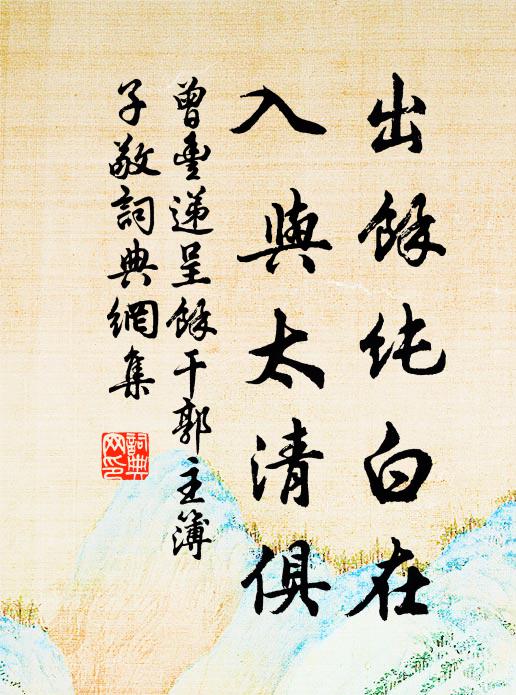 出餘纯白在
入與太清俱
曾豊递呈餘干郭主簿
子敬詞典網集
詞典
网印